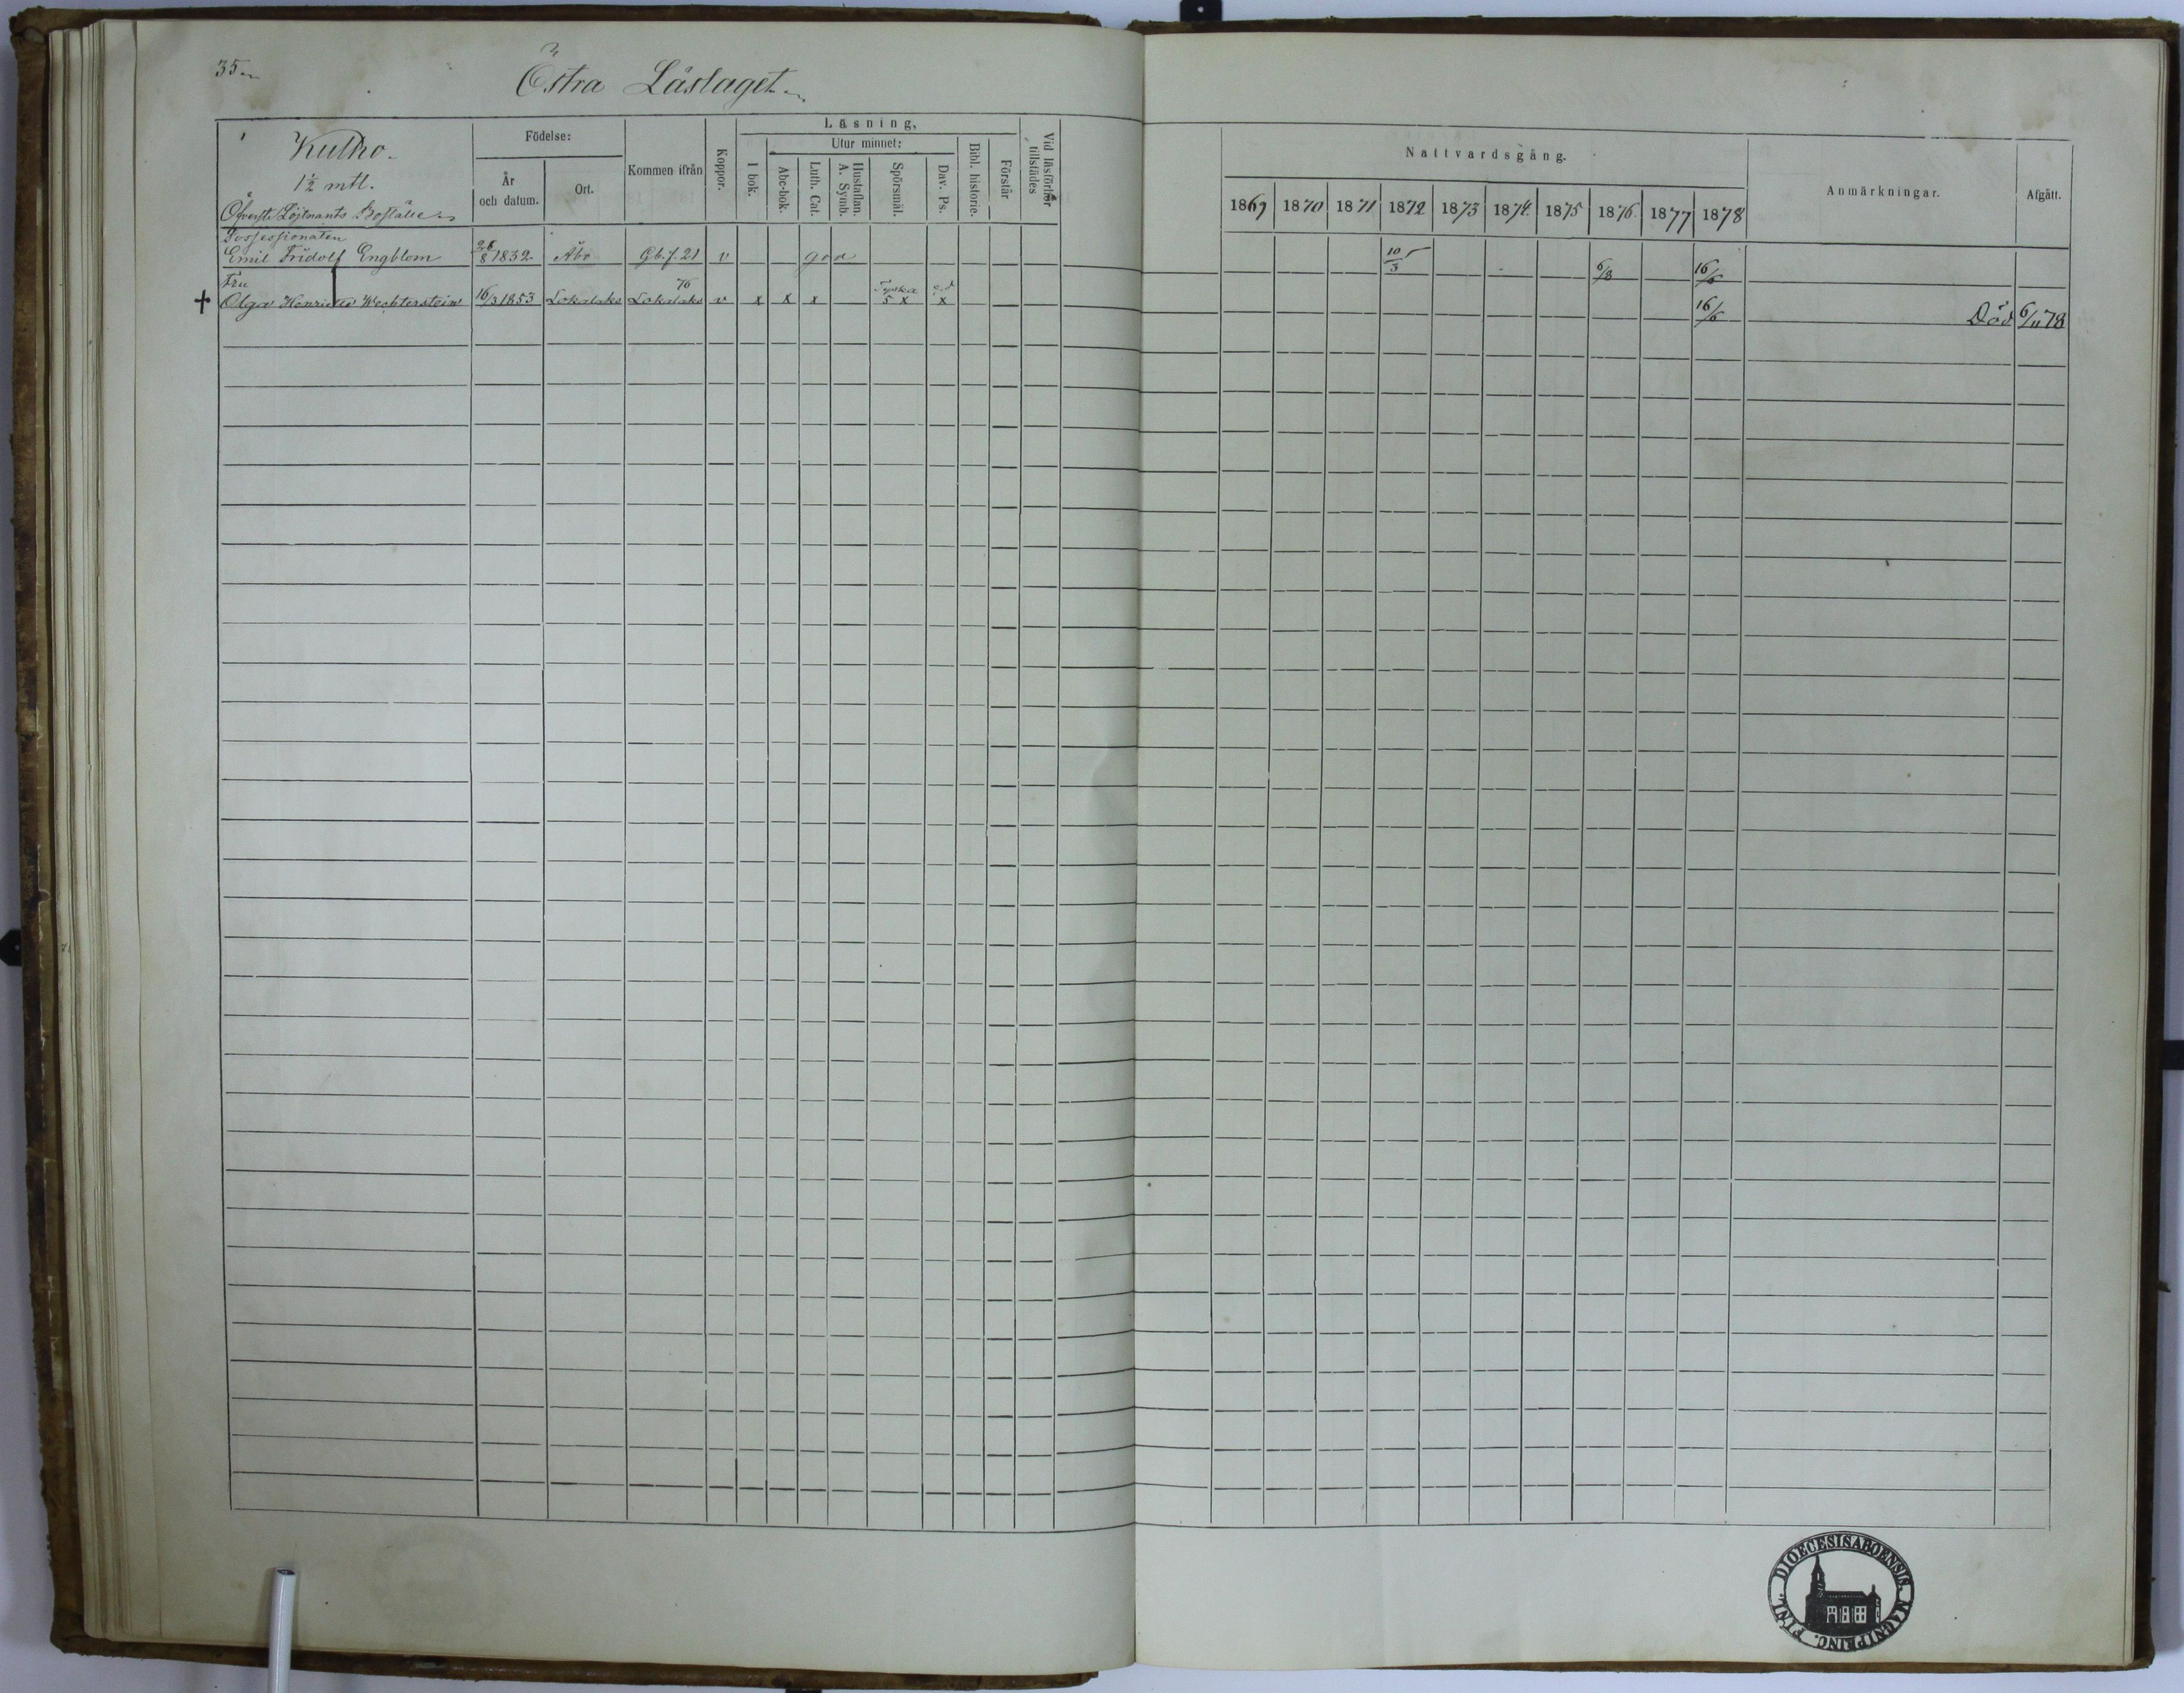 35
Östra Läslaget
Kultho.
1½ mtl.
Öfverste Löjtnants Boställe
Födelse:
År och datum.
Ort.
Kommen ifrån
Koppor.
Läsning,
I bok.
Utur minnet:
Abc-bok.
Luth. Cat.
Hustaflan. A. Symb.
Spörsmål.
Dav. Ps.
Bibl. historie.
Förstår
Vid läsförhör tillstädes
Nattvardsgång.
1869 1870 1871 1872 1873 1874 1875 1876 1877 1878
Anmärkningar.
Afgått.
Possessionaten
Emil Fridolf Engblom 28/8 1832 Åbo Gb. f. 21 v god 10/3 6/8 16/6
Fru
+ Olga Henriette Wechterstein 16/3 1853 Lokalaks Lokalaks 76 v x x x 5 x x 16/6 Död 6/11 78
DIOECESIS ABOENSIS. MAGNI PRINC. FINL.